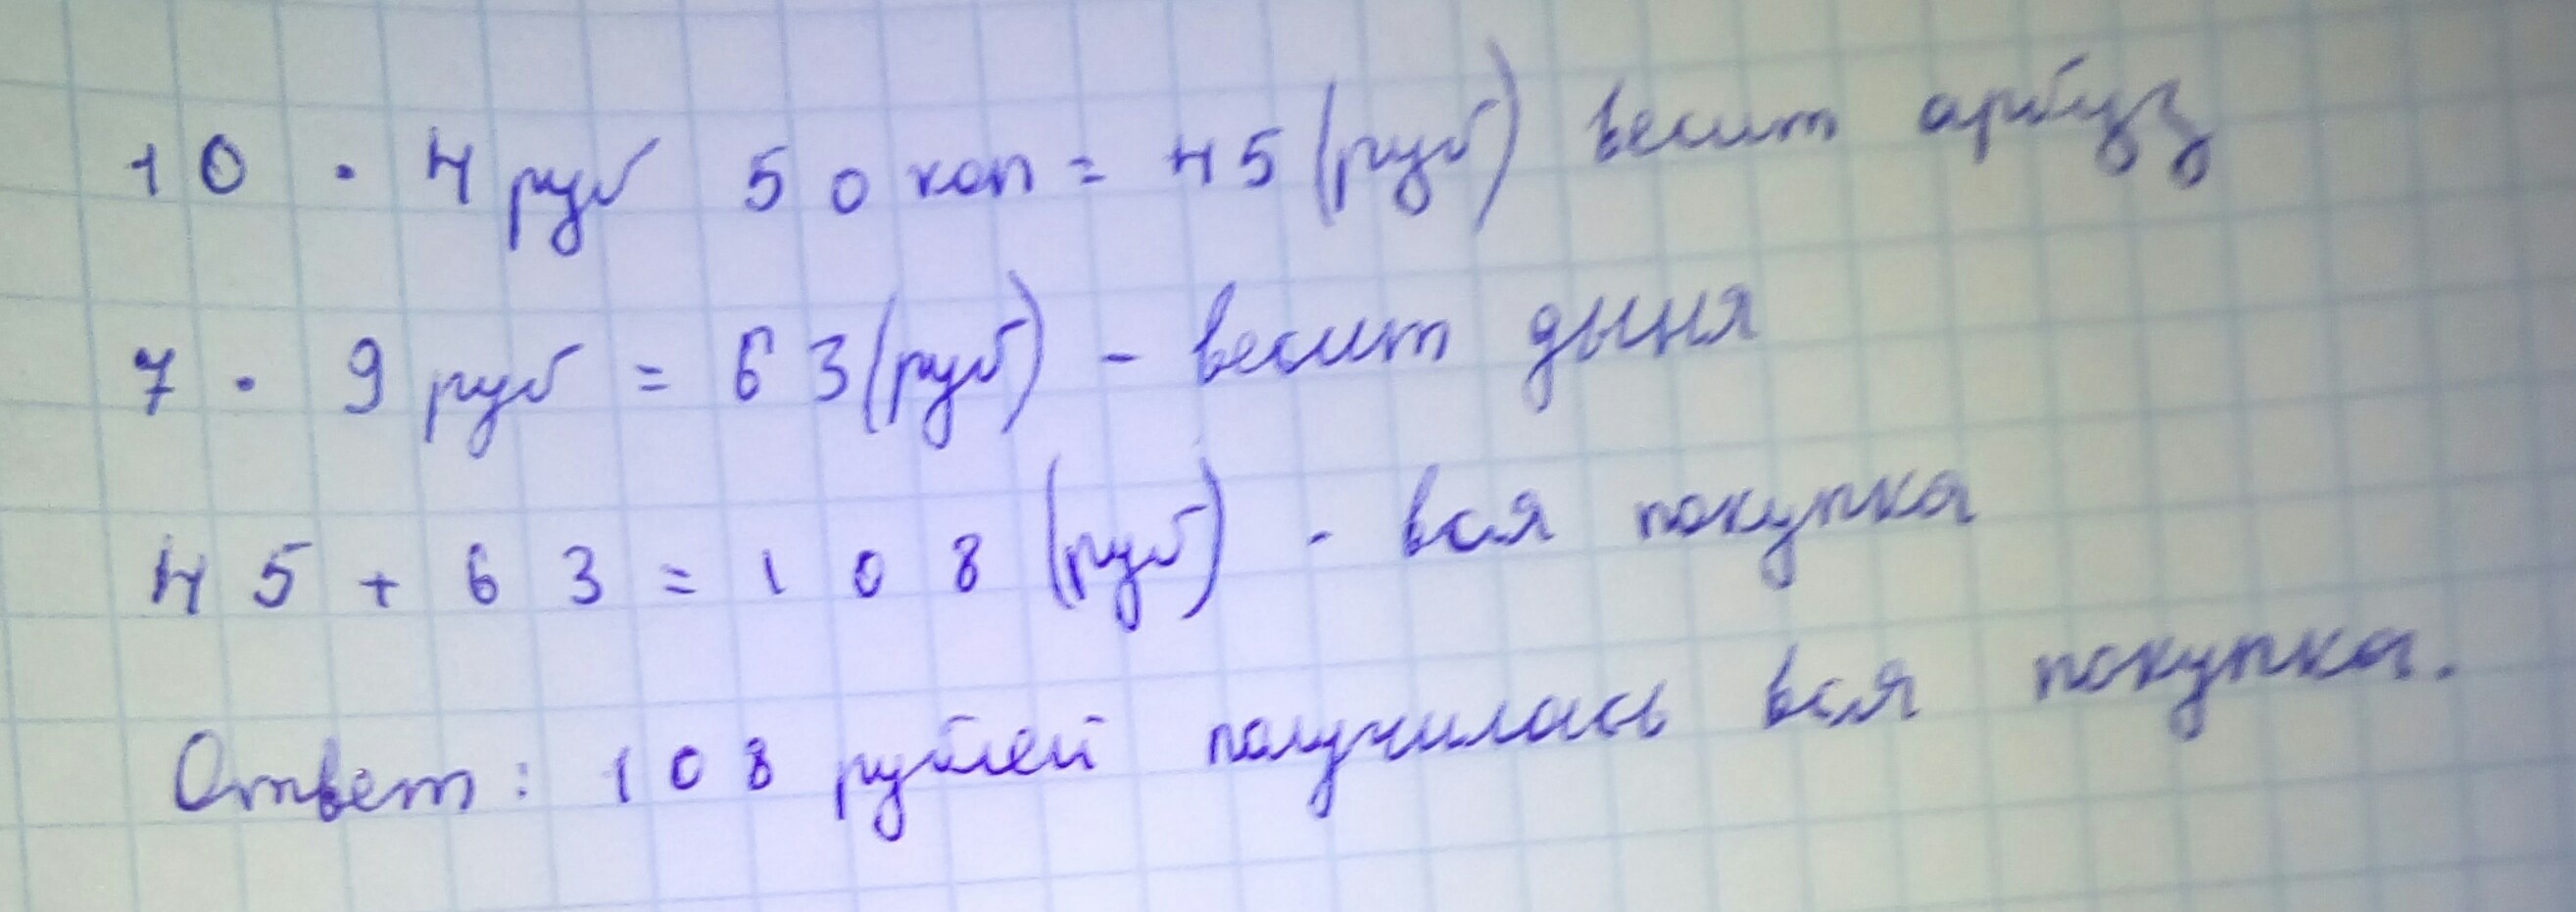 10 · 4 руб 50 коп = 45 (руб) весит арбуз
7 · 9 руб = 63 (руб) - весит дыня
45 + 63 = 108 (руб) - вся покупка
Ответ: 108 рублей получилась вся покупка.